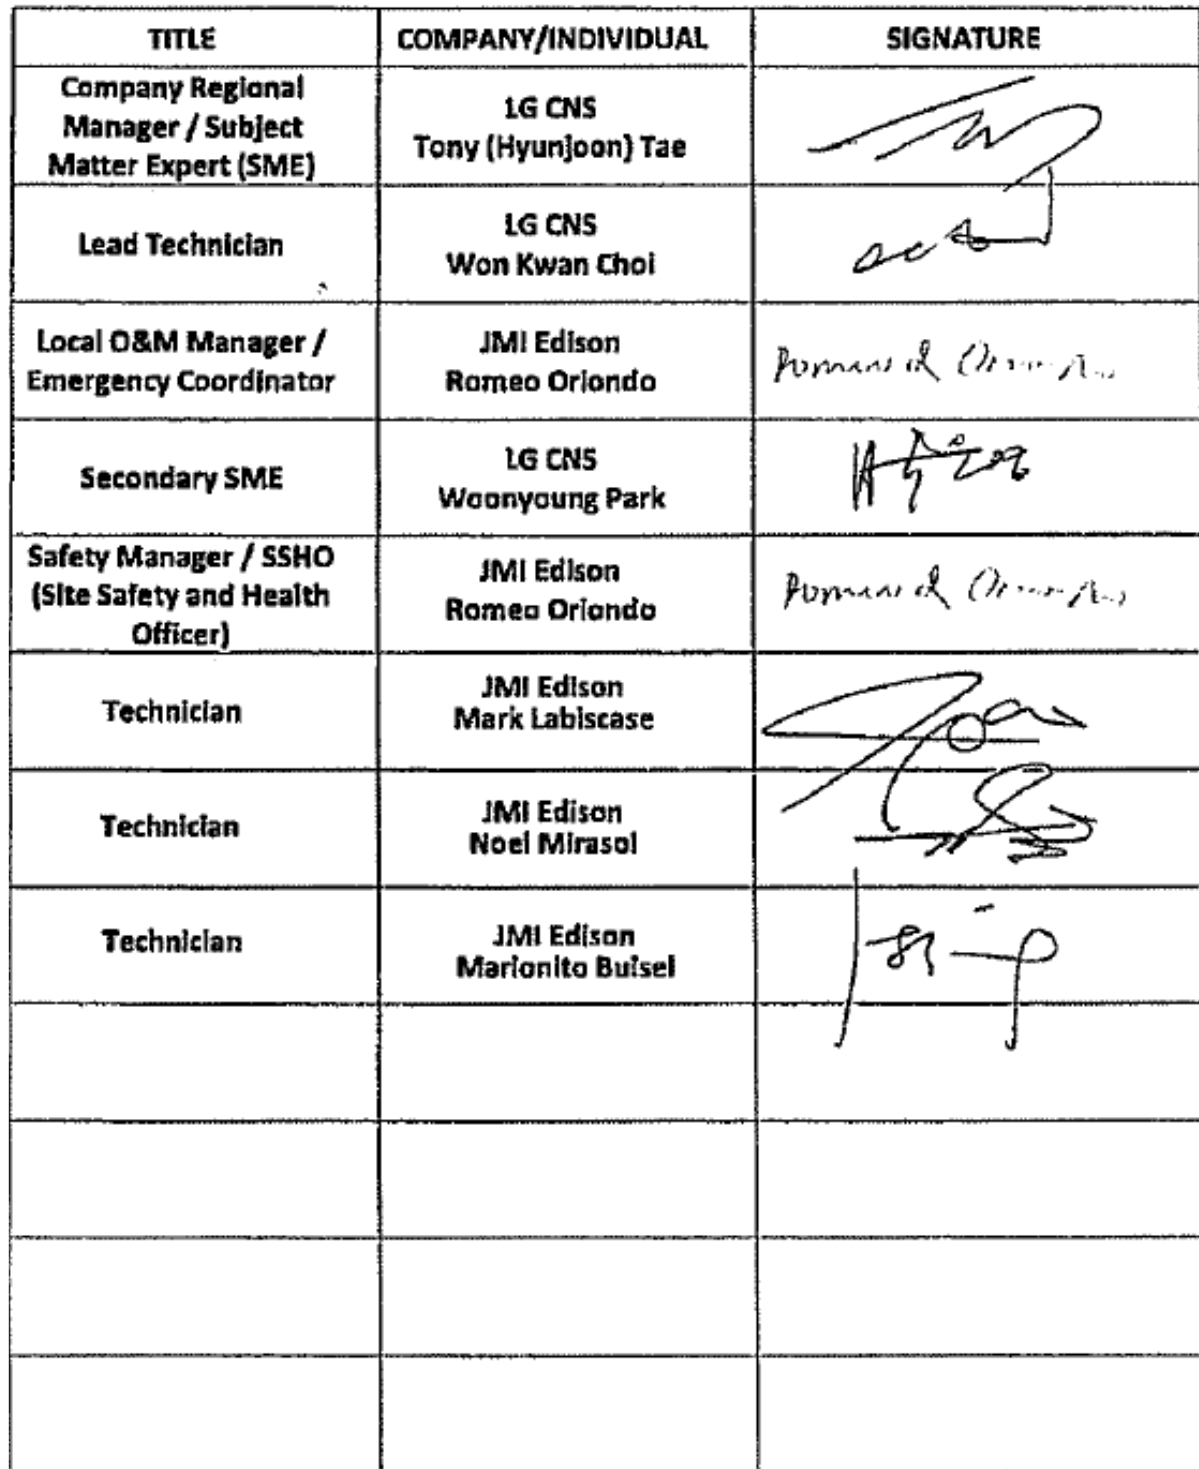 TITLE COMPANY/INDIVIDUAL SIGNATURE
Company Regional
Manager / Subject
Matter Expert (SME)
LG CNS
Tony (Hyunjoon) Tae
Lead Technician
LG CNS
Won Kwan Choi
Local O&M Manager /
Emergency Coordinator
JMI Edison
Romeo Oriondo
Secondary SME
LG CNS
Woonyoung Park
Safety Manager / SSHO
(Site Safety and Health
Officer)
JMI Edison
Romeo Oriondo
Technician
JMI Edison
Mark Labiscase
Technician
JMI Edison
Noel Mirasol
Technician
JMI Edison
Marionito Buisel